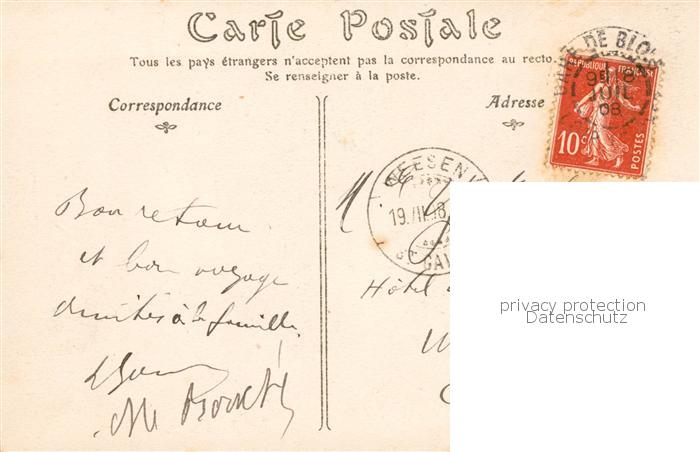 Carte Postale
Tous les pays étrangers n'acceptent pas la correspondance au recto.
Se renseigner à la poste.
Correspondance
Adresse
RÉPUBLIQUE FRANÇAISE
10 c
POSTES
DE BLOIS
JUIL
08
WEESEN
19.VII.08
GAL
Bon retour
et bon voyage
amitiés à la famille
Hôtel
privacy protection
Datenschutz